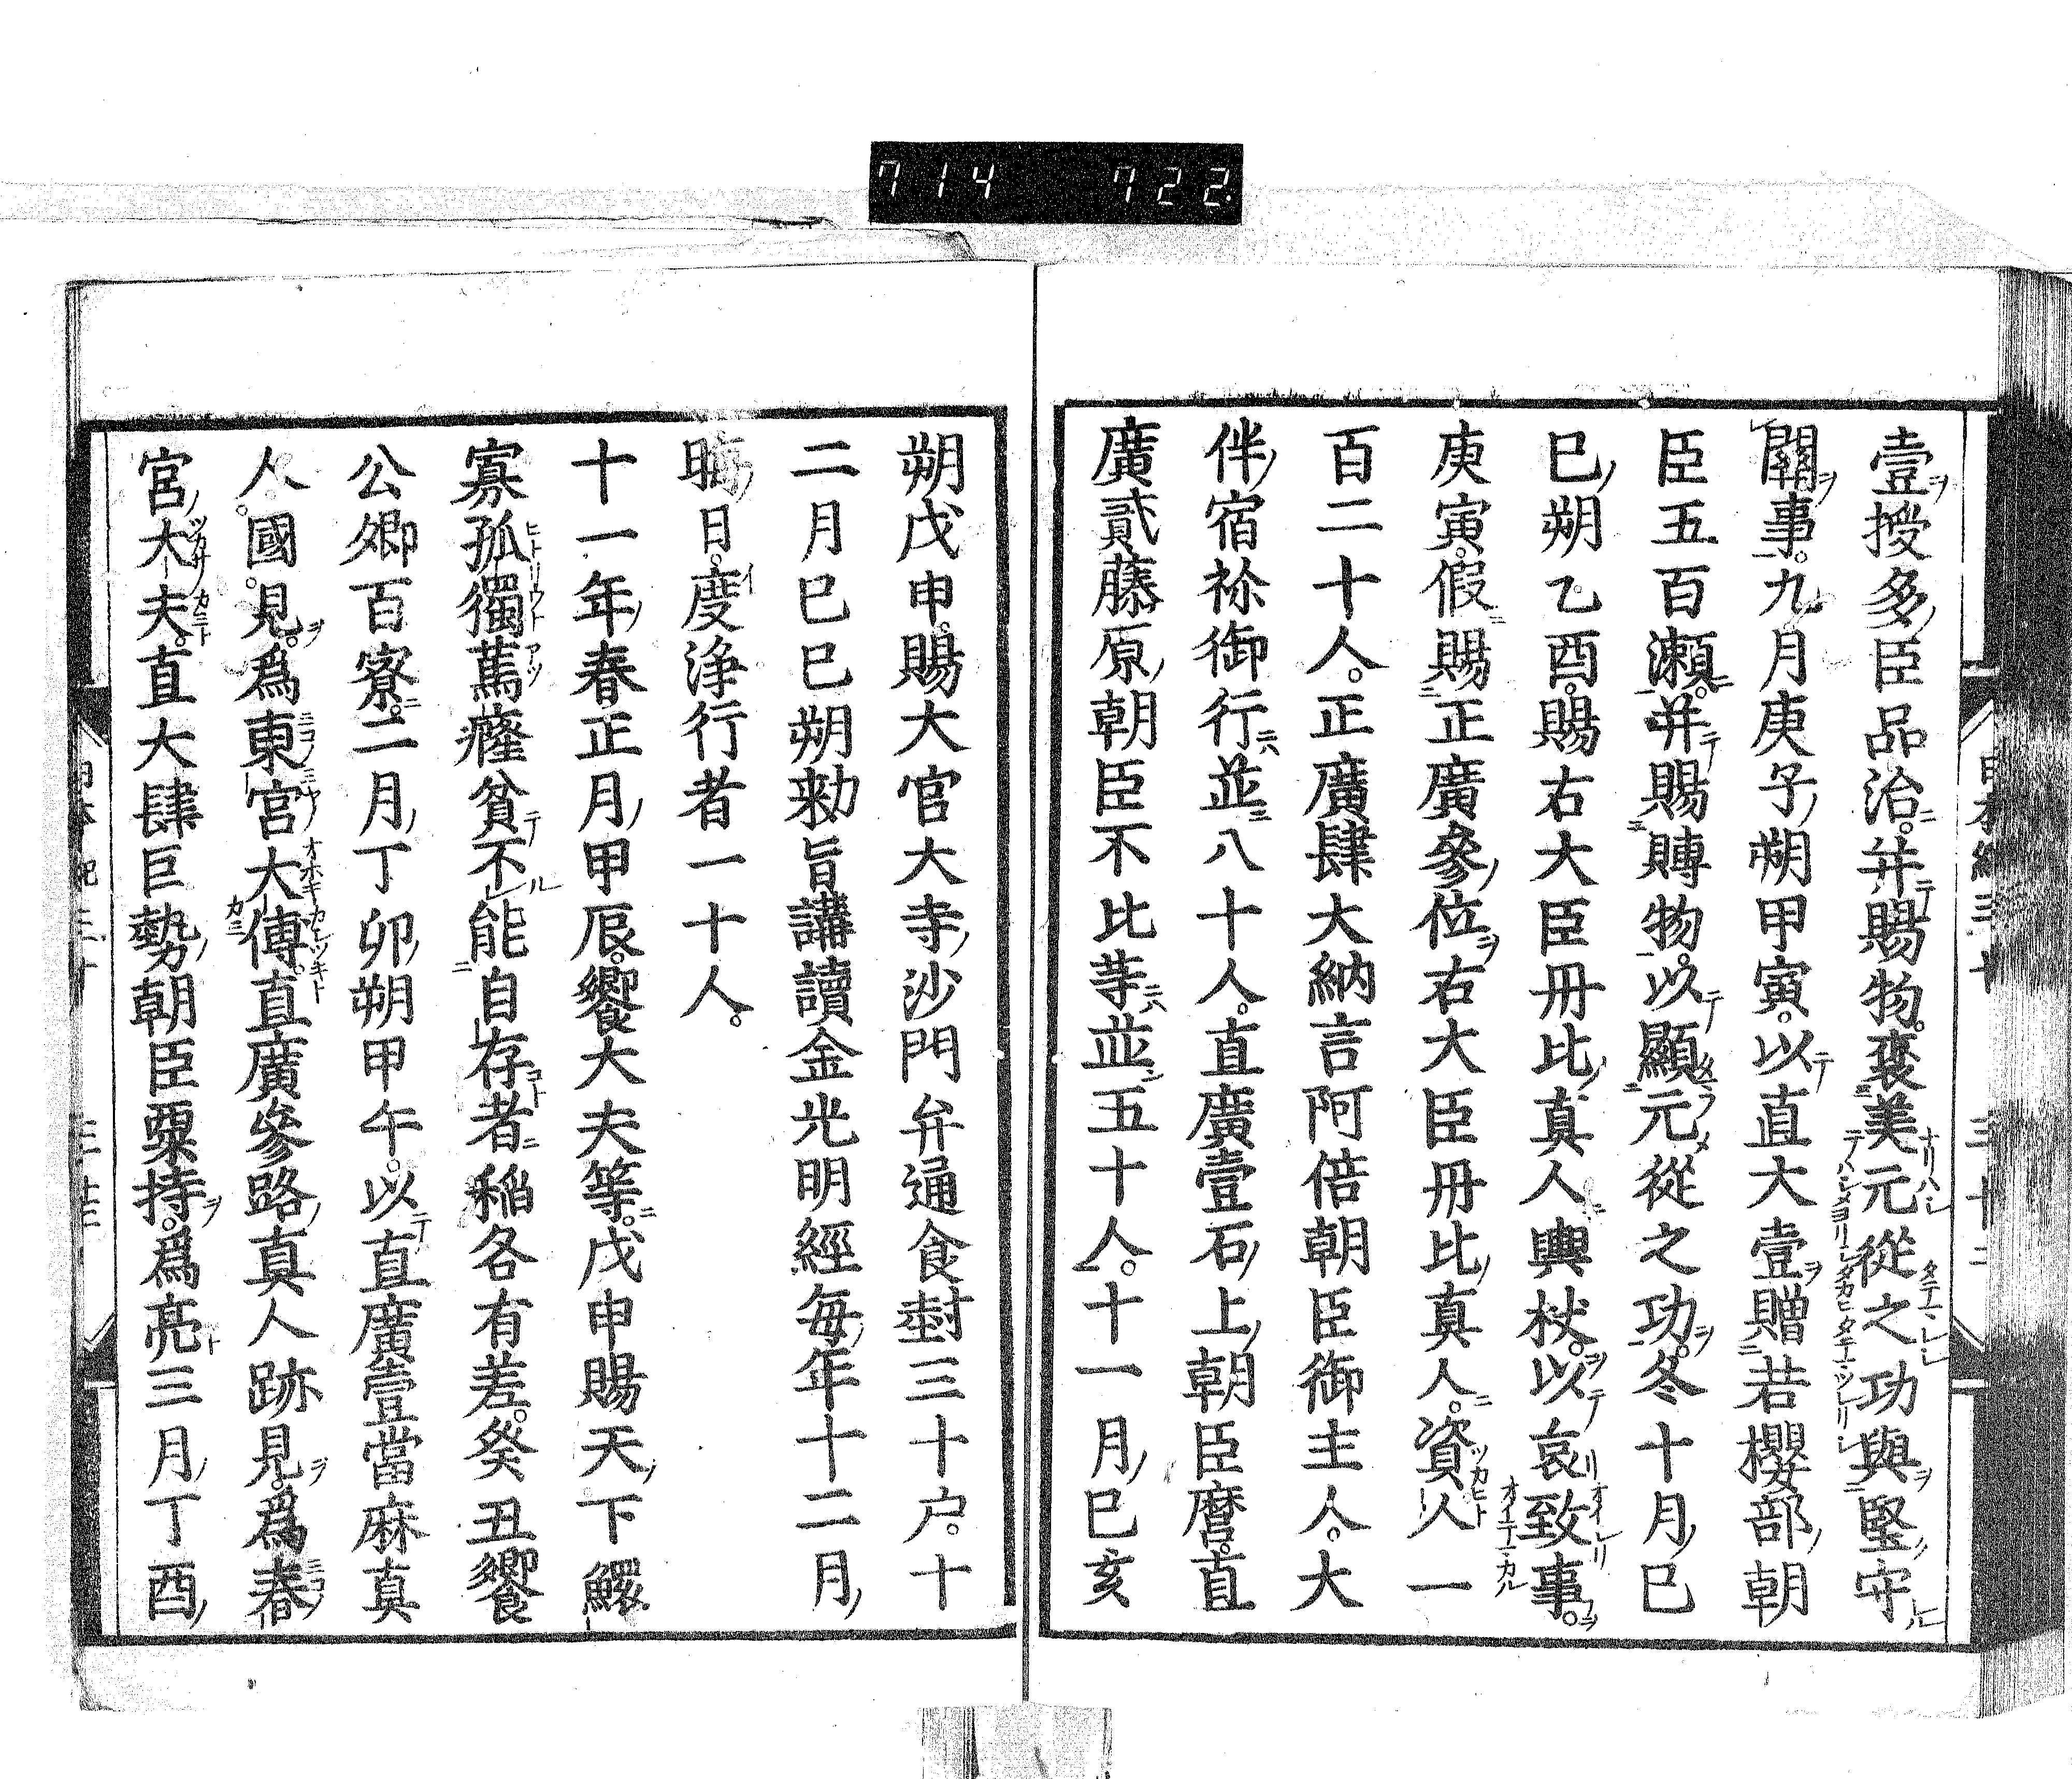 714 722
壹授多臣品治并賜物襃美元從之功與堅守
關事九月庚子朔甲寅以直大壹贈若櫻部朝
臣五百瀬并賜賻物以顯元從之功冬十月已
已朔乙酉賜右大臣丹比真人輿杖以哀致事
庚寅假賜正廣參位右大臣丹比真人資人一
百二十人正廣肆大納言阿倍朝臣御主人大
伴宿祢御行並八十人直廣壹石上朝臣麿直
廣貳藤原朝臣不比等並五十人十一月已亥
朔戊申賜大官大寺沙門弁通食封三十戸十
二月已已朔勑旨講讀金光明經毎年十二月
晦日度淨行者一十人
十一年春正月甲辰饗大夫等戊申賜天下鰥
寡孤獨篤癃貧不能自存者稲各有差癸丑饗
公卿百寮二月丁卯朔甲午以直廣壹當麻真
人國見爲東宮大傅直廣參路真人跡見爲春
宮大夫直大肆巨勢朝臣粟持爲亮三月丁酉